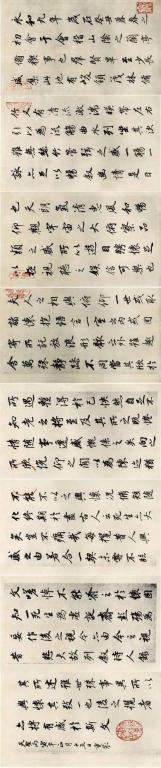 永和九年歲在癸丑暮春之
初會于會稽山陰之蘭亭
脩禊事也群賢畢至少長
咸集此地有峻領茂林脩
竹又有清流激湍暎帶左右
引以為流觴曲水列坐其次
雖無絲竹管弦之盛一觴一
詠亦足以暢敘幽情是日
也天朗氣清惠風和暢
仰觀宇宙之大俯察品
類之盛所以遊目騁懷足以
極視聽之娛信可樂也
夫人之相與俯仰一世或取
諸懷抱悟言一室之內或因
寄所託放浪形骸之外雖趣
舍萬殊靜躁不同當其欣於
所遇暫得於己快然自足不
知老之將至及其所之既惓
情隨事遷感慨係之矣向之
所欣俛仰之間以為陳迹猶
不能不以之興懷況脩短隨
化終期於盡古人云死生亦大
矣豈不痛哉每攬昔人興
感之由若合一契未嘗不臨
文嗟悼不能喻之於懷固
知一死生為虛誕齊彭殤為
妄作後之視今亦由今之視
昔悲夫故列敘時人錄
其所述雖世殊事異所以
興懷其致一也後之攬者
亦將有感於斯文
丙寅年四月十五日